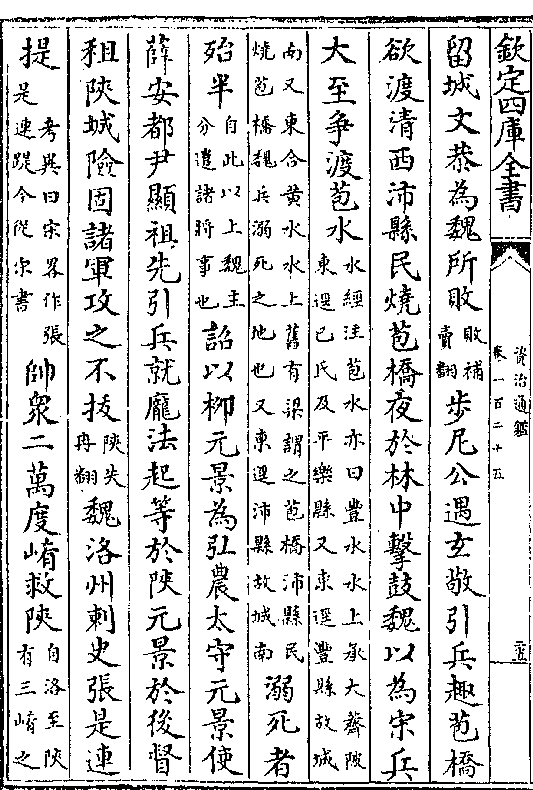 欽定四庫全書
資治通鑑
卷一百二十五
留城文恭為魏所敗敗補賣翻步尼公遇玄敬引兵趣苞橋
欲渡清西沛縣民燒苞橋夜於林中擊鼓魏以為宋兵
大至爭渡苞水水經注苞水亦曰豐水水上承大薺陂東逕已氏及平樂縣又東逕豐縣故城
南又東合黄水水上舊有梁謂之苞橋沛縣民燒苞橋魏兵溺死之地也又東逕沛縣故城南溺死者
殆半自此以上魏主分遣諸將事也詔以柳元景為弘農太守元景使
薛安都尹顯祖先引兵就龐法起等於陜元景於後督
租陜城險固諸軍攻之不拔陜失冉翻魏洛州刺史張是連
提考異曰宋畧作張是連踶今從宋書帥衆二萬度崤救陜自洛至陜有三崤之